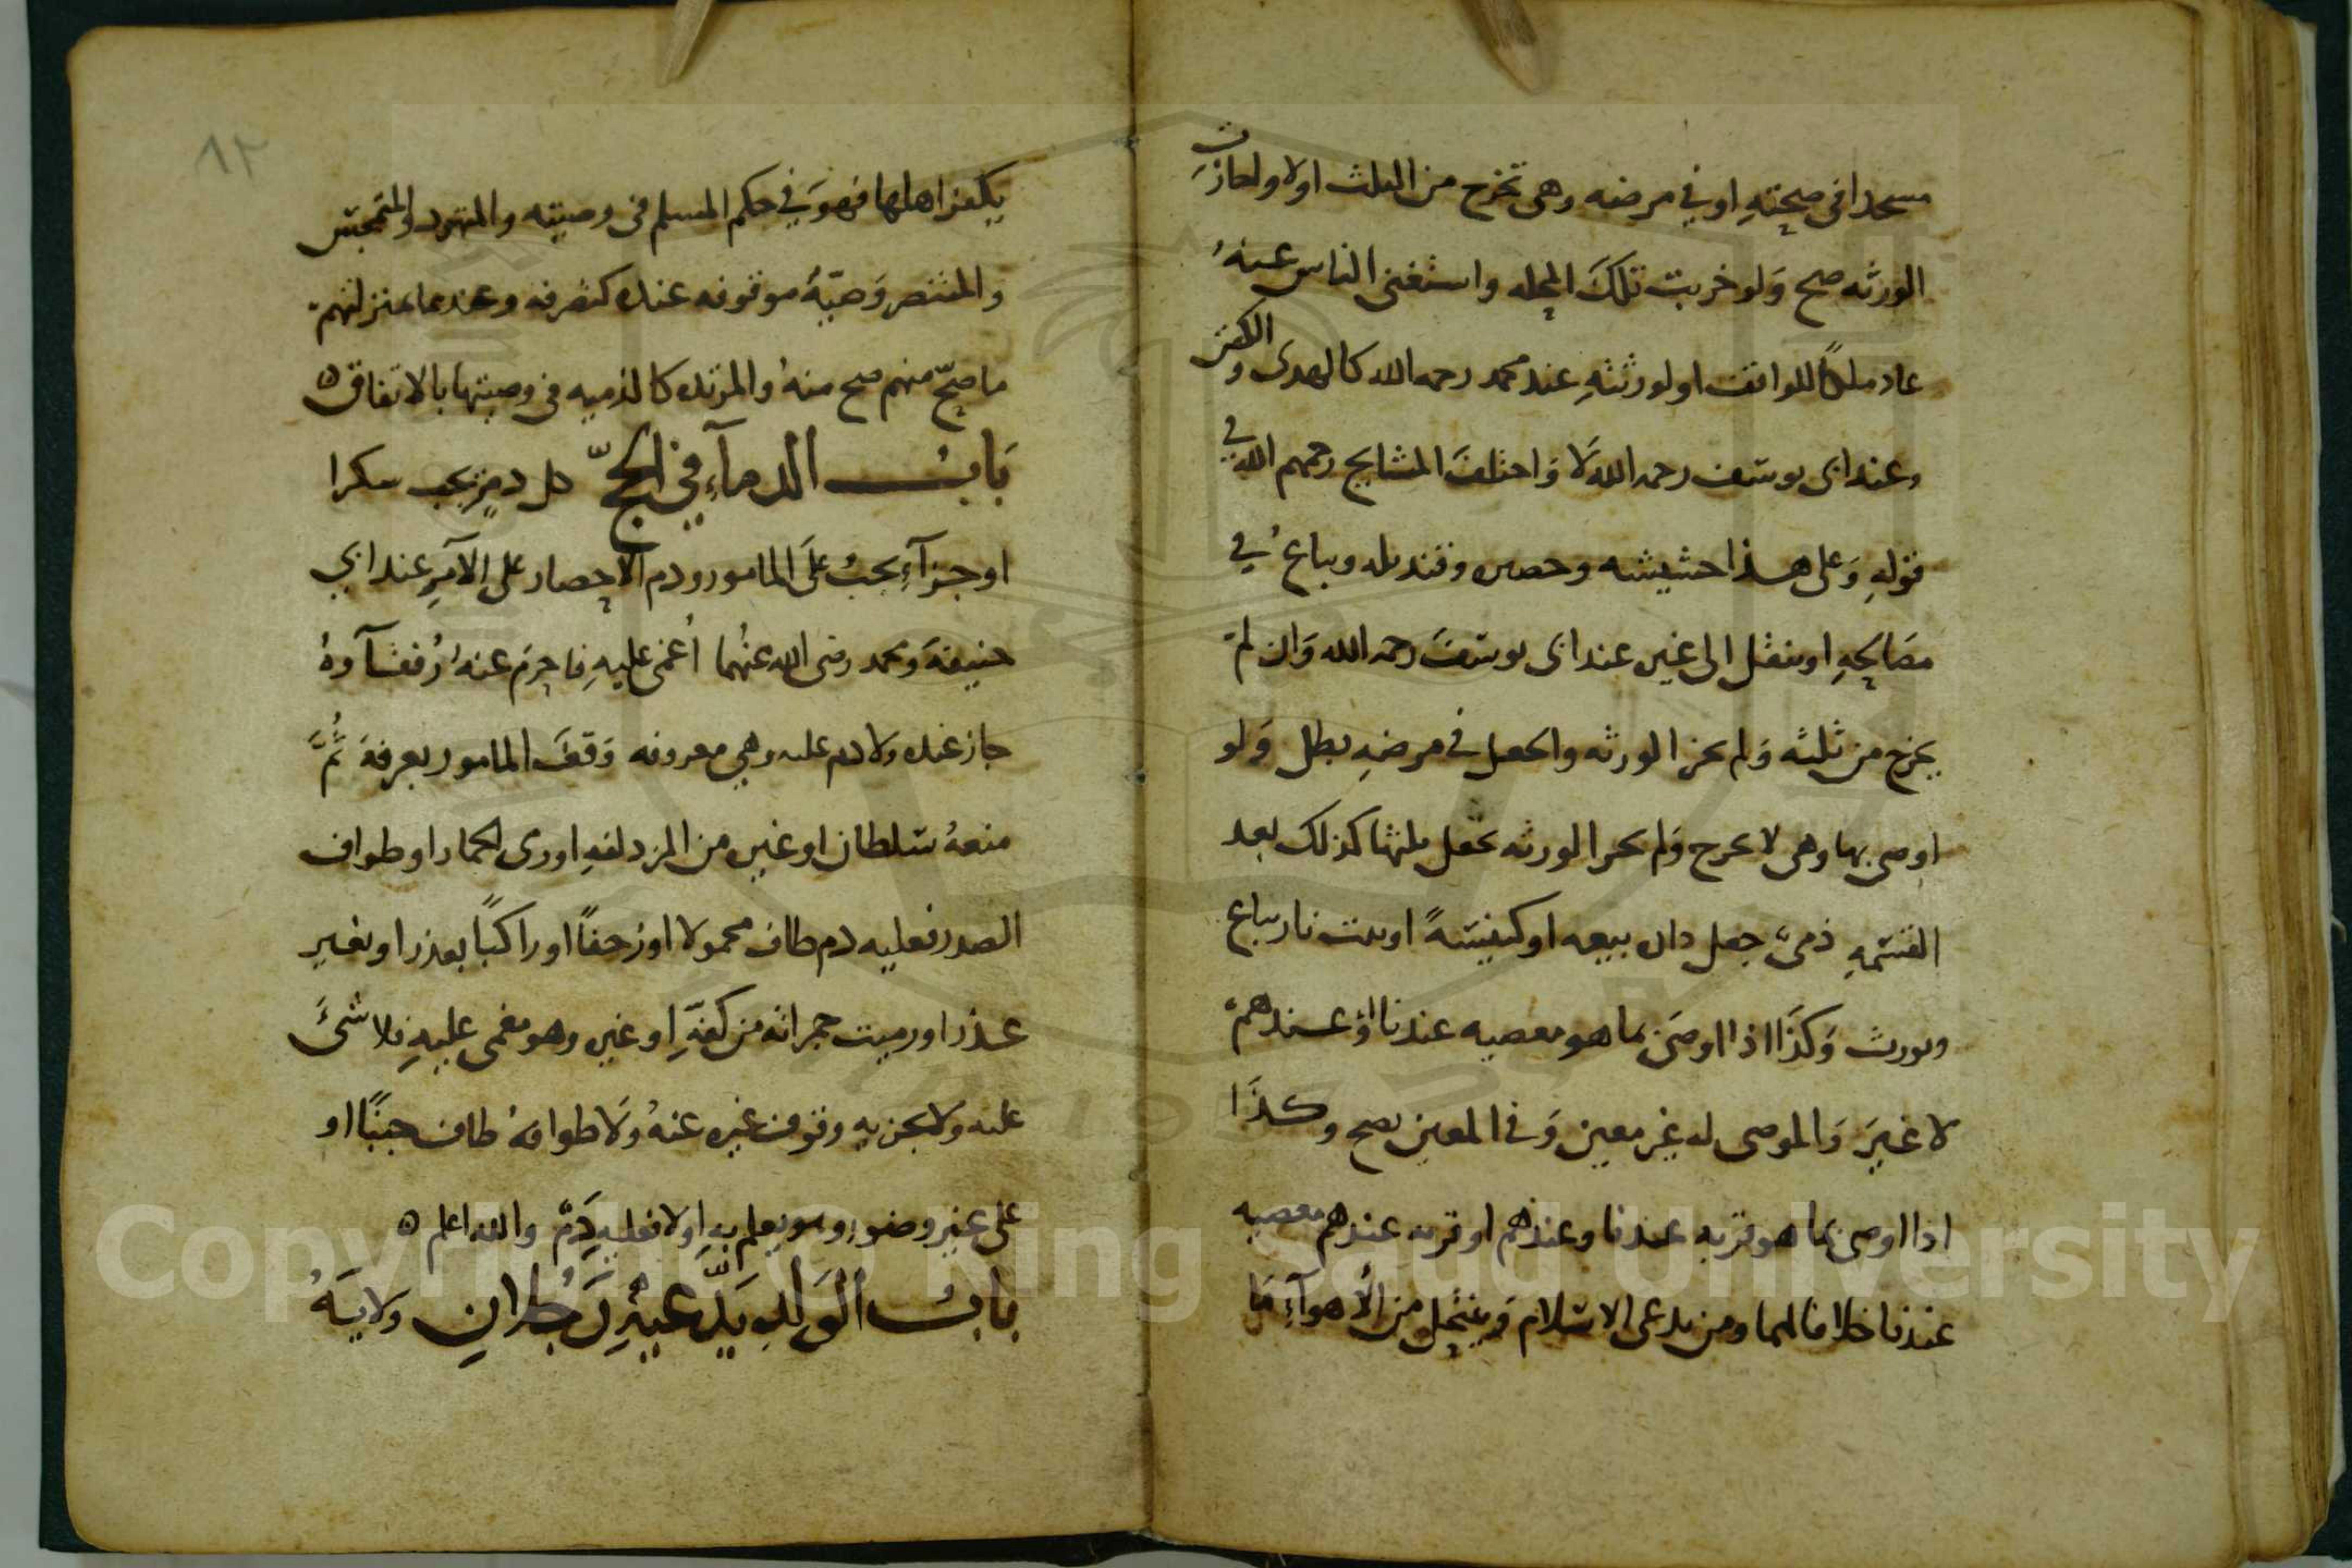 مسجدا في صحته او في مرضه وهي تخرج من الثلث اولا واجازت
الورثه صح ولو خربت تلك المحله واستغنى الناس عنه
عاد ملكا للواقف او لورثته عند محمد رحمه الله كالهدى والكفن
وعند ابى يوسف رحمه الله لا واختلف المشايخ رحمهم الله في
قوله وعلى هذا حشيشه وحصيره وقنديله ويباع في
مصالحه او ينقل الى غيره عند ابى يوسف رحمه الله وان لم
يخرج من ثلثه ولم يجز الورثه والجعل في مرضه بطل ولو
اوصى بها وهى لا تخرج ولم يجز الورثه تجعل ثلثها كذلك بعد
القسمه ذمى جعل داره بيعه او كنيسة او بيت نار يباع
ويورث وكذا اذا اوصى بما هو معصيه عندنا او عندهم
لا غير والموصى له غير معين وفي المعين يصح وكذا
اذا اوصى بما هو قربه عندنا وعندهم او قربه عندهم معصيه
عندنا خلافا لهما ومن يدعى الاسلام وينتحل من الأهوآء ما
٨٢
يكفر اهلها فهو في حكم المسلم في وصيته والمتهود والمتمجس
والمتنصر وصيته موقوفه عنده كتصرفه وعندهما بمنزلتهم
ما صح منهم صح منه والمرتده كالذميه في وصيتها بالاتفاق ه
باب الدمآء في الحج كل دم يجب شكرا
او جزآء يجب على المامور ودم الاحصار على الآمر عند ابي
حنيفة ومحمد رضى الله عنهما أغمى عليه فاحرم عنه رفقآؤه
جاز عنده ولا دم عليه وهي معروفه وقف المامور بعرفة ثم
منعه سلطان او غيره من المزدلفه او رمى الجمار او طواف
الصدر فعليه دم طاف محمولا او زحفا او راكبا بعذر او بغير
عذر او رميت جمراته من كفه او غيره وهو مغمى عليه فلا شئ
عليه ولا يجزيه وقوف غيره عنه ولا طوافه طاف جنبا او
على غير وضوء وهو يعلم به او لا فعليه دم والله اعلم ه
باب الولد يدعيه رجلان ولايته